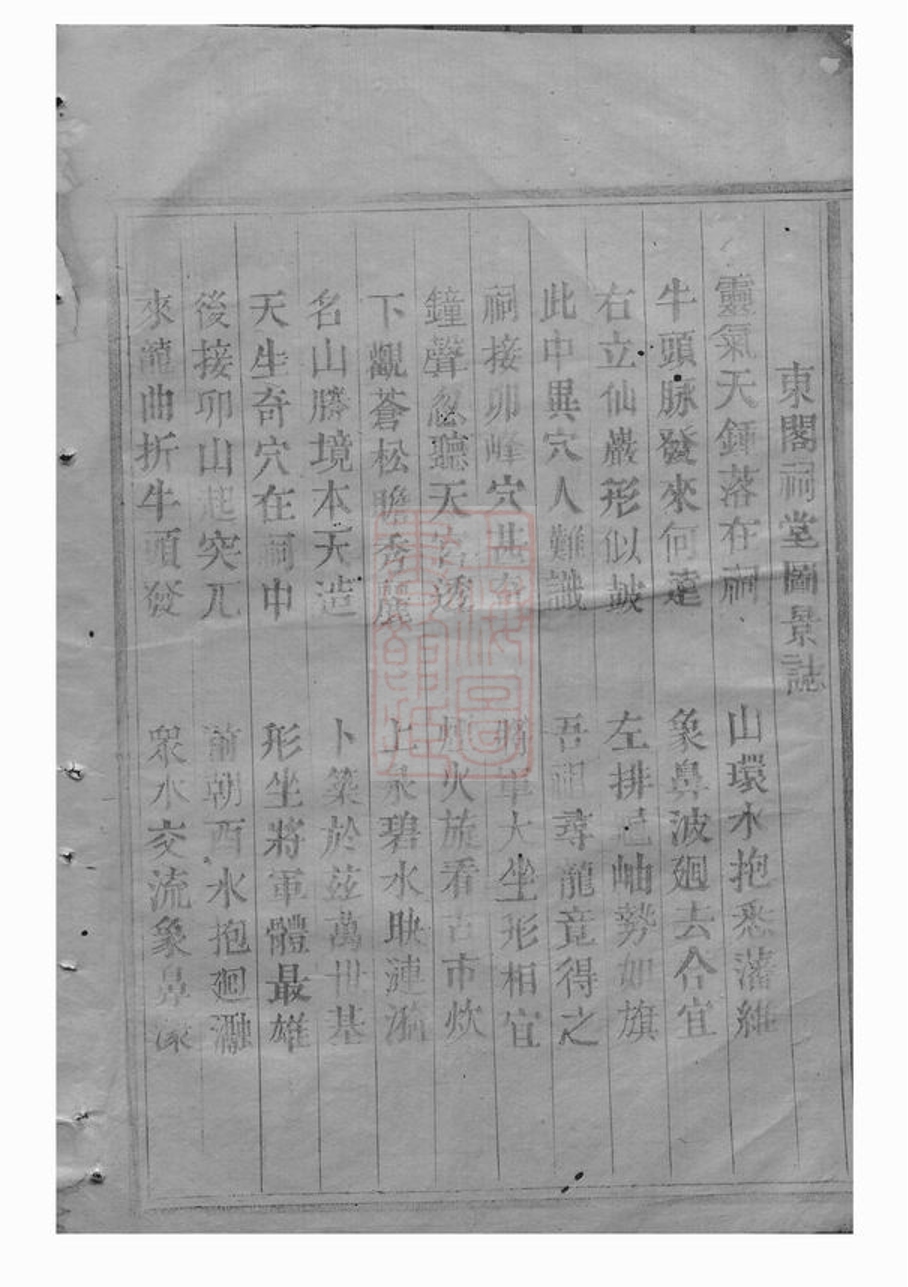 東閣祠堂圖景誌
靈氣天鍾落在祠 山環水抱悉藩維
牛頭脉發來何遠 象鼻波廻去合宜
右立仙巖形似鼓 左排 岫勢如旗
此中異穴人難識 吾祖尋龍竟得之
祠接卯峰穴甚奇 將軍大坐形相宜
鐘聲忽聽天宮透 火旋看古市炊
下觀蒼松瞻秀麗 上 碧水映漣漪
名山勝境本天造 卜築於茲萬世基
天生奇穴在祠中 形坐將軍體最雄
後接卯山起突兀 前朝西水抱廻瀜
來龍曲折牛頭發 眾水交流象鼻濛